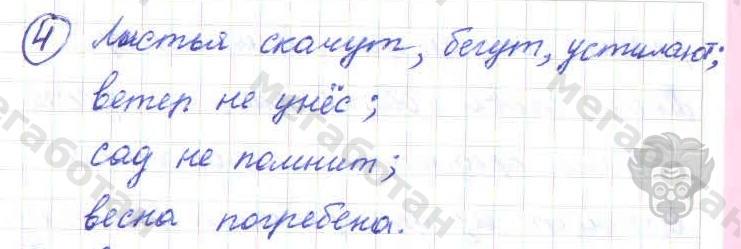 4 Листья скачут, бегут, устилают;
ветер не унёс;
сад не помнит;
весна погребена.
Мегаботан
Мегаботан
Мегаботан